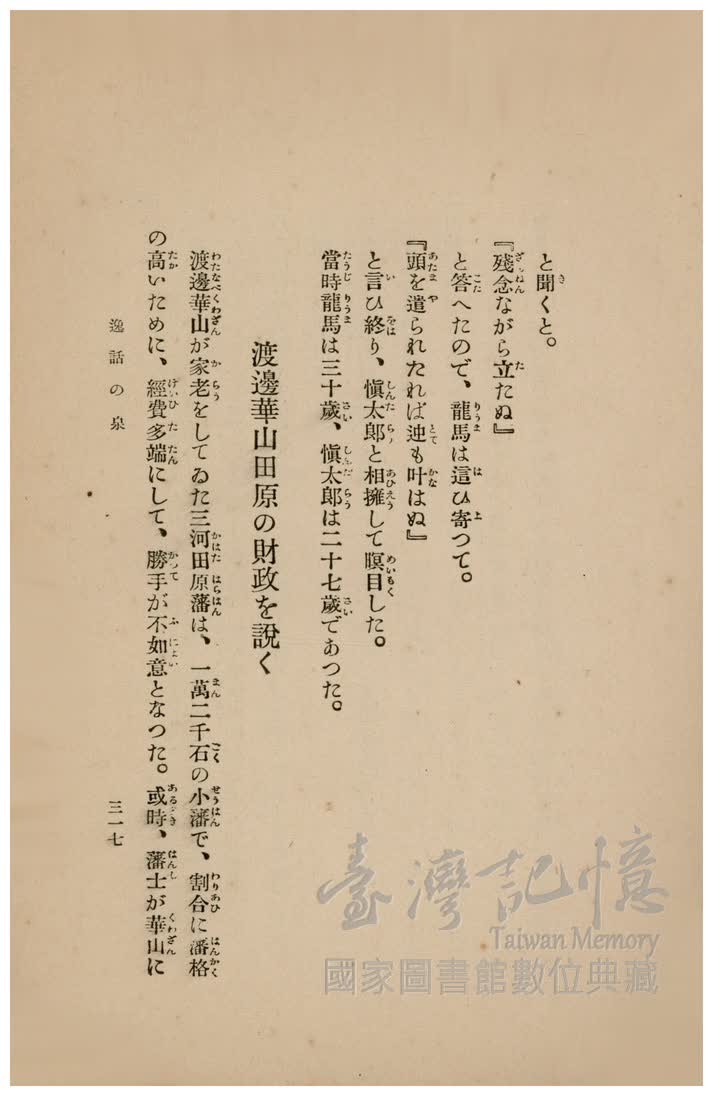 と聞くと。
『殘念ながら立たぬ』
と答へたので、龍馬は這ひ寄つて。
『頭を遣られたれば迚も叶はぬ』
と言ひ終り、愼太郞と相擁して瞑目した。
當時龍馬は三十歲、愼太郞は二十七歲であつた。
渡邊華山田原の財政を說く
渡邊華山が家老をしてゐた三河田原藩は、一萬二千石の小藩で、割合に藩格
の高いために、經費多端にして、勝手が不如意となつた。或時、藩士が華山に
逸話の泉
三一七
臺灣記憶
Taiwan Memory
國家圖書館數位典藏